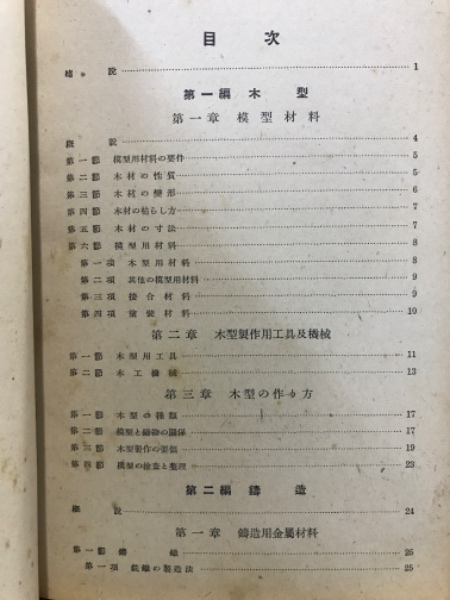 目次
総説 1
第一編 木型
第一章 模型材料
概説 4
第一節 模型用材料の要件 5
第二節 木材の性質 5
第三節 木材の變形 6
第四節 木材の枯らし方 7
第五節 木材の寸法 7
第六節 模型用材料 8
第一項 木型用材料 8
第二項 其他の模型用材料 9
第三項 接合材料 9
第四項 塗裝材料 10
第二章 木型製作用工具及機械
第一節 木型用工具 11
第二節 木工機械 13
第三章 木型の作り方
第一節 木型の種類 17
第二節 模型と鑄物の關係 17
第三節 木型製作の要領 19
第四節 模型の檢査と整理 23
第二編 鑄造
概説 24
第一章 鑄造用金屬材料
第一節 鑄鐵 25
第一項 銑鐵の製造法 25